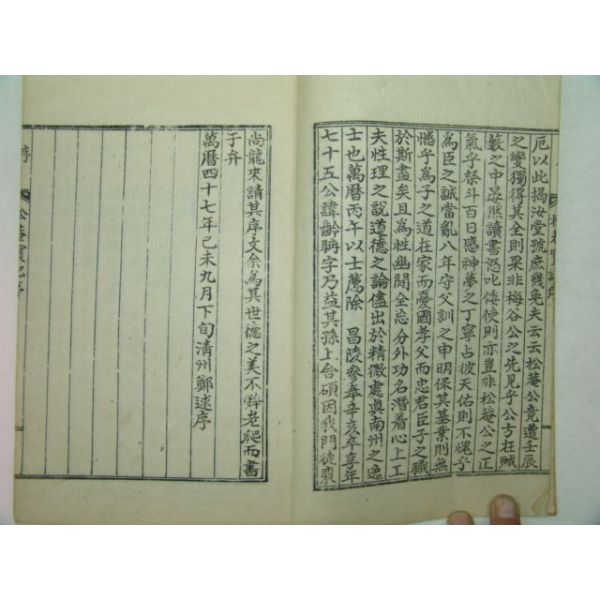 厄以此揭汝堂號庶幾免夫云云松菴公竟遭壬辰
之變獨得其全則果非梅谷公之先見乎公方在賊
藪之中晏然讀書怒叱倭使則亦豈非松菴公之正
氣乎祭斗百日感神夢之丁寧占彼天佑則不愧乎
爲臣之誠當亂八年守父訓之申明保其基業則無
憾乎爲子之道在家而憂國孝父而忠君臣子之職
於斯盡矣且爲性幽閒全忘分外功名潛着心上工
夫性理之說道德之論儘出於精微處眞南州之逸
士也萬曆丙午以士薦除 昌陵參奉辛亥卒享年
七十五公諱齡稱字乃益其孫上舍碩因我門徒裵
尙龍來請其序文余爲其世德之美不辭老爬而書
于弁
萬曆四十七年己未九月下旬淸州鄭逑序
序 松菴實記序